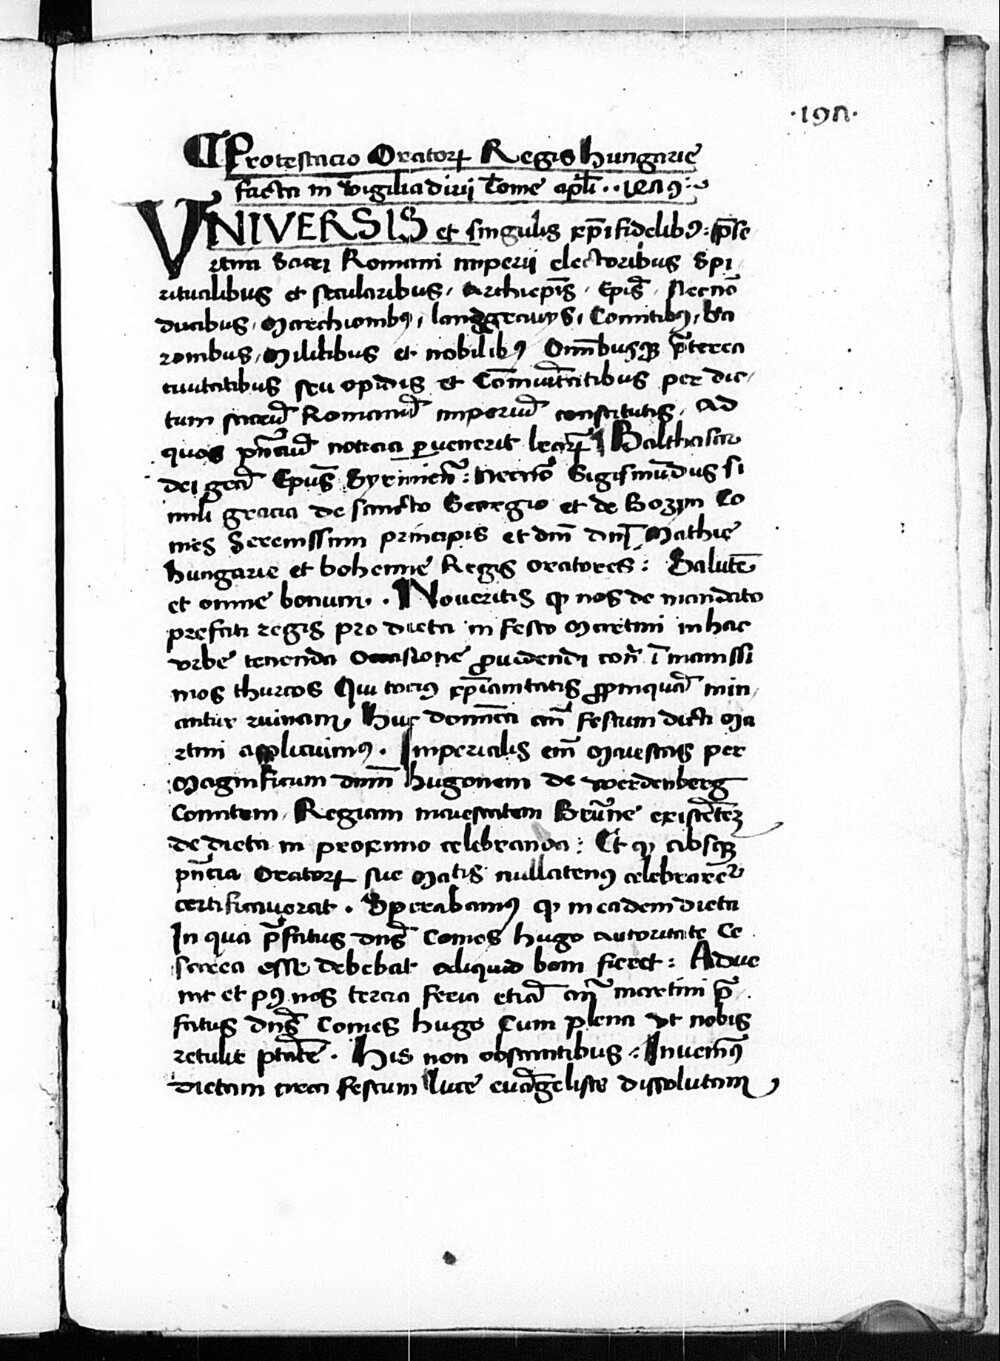 ·197·
Protestacio Oratorꝝ Regis hungarie
facta in vigilia divi Tome apl̅i · · 1479 ·
VNIVERSIS et singulis xp̅i fidelibꝰ : p̅se
rtim Sacri Romani imperii electoribus Spi
ritualibus et secularibus, Archiep̅is, Ep̅is, Necno̅
ducibus, Marchionibꝰ, langgraviis, Comitibꝰ, ba
ronibus, Militibus et nobilibꝰ Omn̅busqꝫ p̅terea
civitatibus seu opidis et Com̅vitatibus per dic
tum sacru̅ Romanu̅ imperiu̅ constitutis, Ad
quos pn̅ciu̅ noticia pervenerit Balthasar
dei gr̅a Ep̅us Syrimien̅ : Necno̅ Sigismu̅dus si
mili gracia de sancto Georgio et de Bozyn Co
mes Serenissimi principis et dn̅i dn̅i Mathie
hungarie et bohemie Regis oratores : Salute̅
et omne bonum. Noveritis qꝫ nos de mandato
prefati regis pro dieta in festo Martini in hac
vrbe tenenda Occasione ꝓvidendi con̅ i̅manissi
mos thurcos Qui tociꝰ xp̅ianitatis ꝓpinqua̅ min
antur ruinam, Huc dominica an̅ festum dicti Ma
rtini applicuimꝰ. Imperialis em̅ Maiestas per
Magnificum dn̅m hugonem de werdenberg
Comitem, Regiam maiestatem Bru̅ne existe̅te̅
de dieta in proximo celebranda : Et qꝫ absqꝫ
pn̅cia Oratorꝝ sue Matis nullatenꝰ celebrare̅r
certificaverat. Sperabamꝰ qꝫ in eadem dieta
In qua p̅fatus dn̅s Comes hugo autoritate Ce
sarea esse debebat aliquid boni fieret : Adve
nit et pꝰ nos tercia feria etia̅ an̅ martini p̅
fatus dn̅s Comes hugo Cum plena vt nobis
retulit ptāte̅. His non obstantibus : Invenimꝰ
dietam circa festum luce eva̅geliste dissolutam,